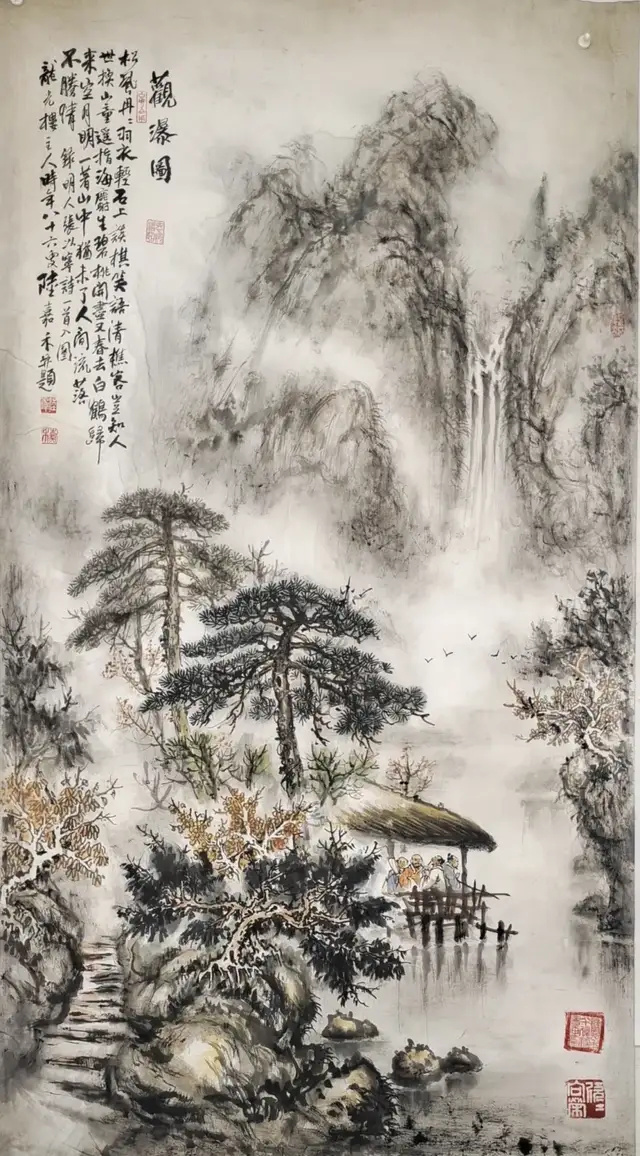 觀瀑圖
松風冉〻羽衣輕石上談棋笑語清樵客豈知人
世換山童遥指海塵生碧桃開盡又春去白鶴歸
來空月明一著山中猶未了人間流落
不勝情 錄明人張以寧詩一首入圖
龍樓主人時年八十六叟陸嘉禾并題